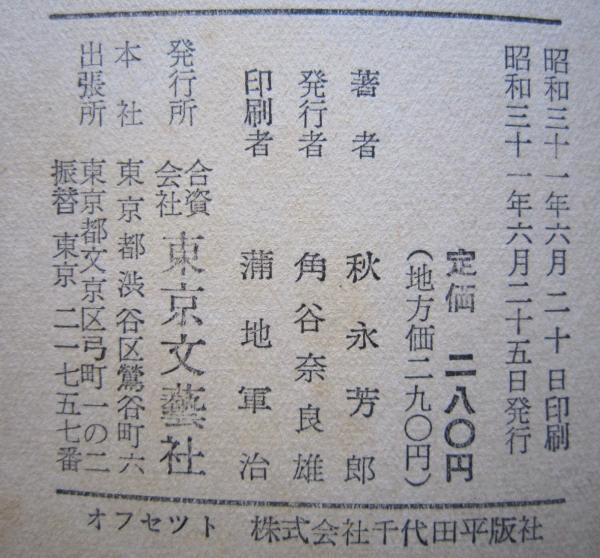 昭和三十一年六月二十日印刷
昭和三十一年六月二十五日発行
定価 二八〇円
(地方価二九〇円)
著者 秋永芳郎
発行者 角谷奈良雄
印刷者 蒲地軍治
発行所 合資会社 東京文藝社
本社 東京都渋谷区鶯谷町六
出張所 東京都文京区弓町一の二
振替 東京 二一七五七番
オフセツト 株式会社千代田平版社